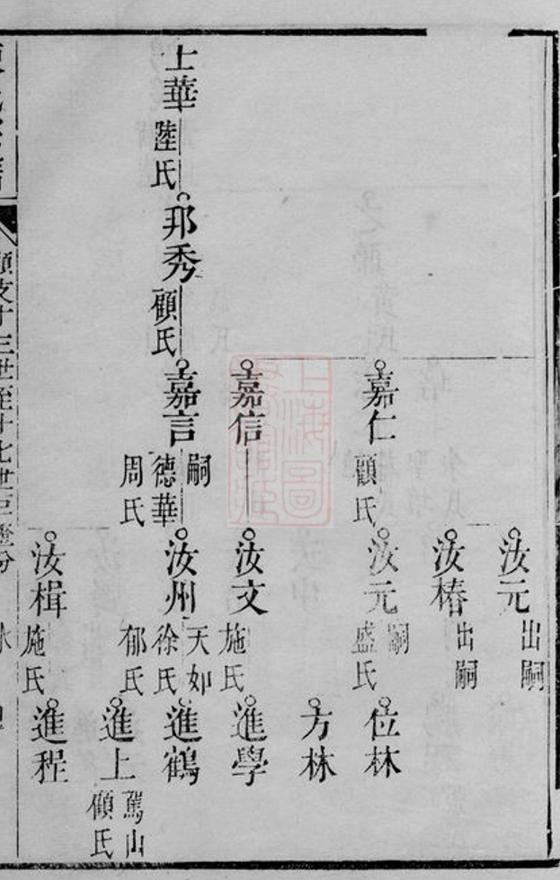 汝元 出嗣
汝椿 出嗣
嘉仁 顧氏 汝元 嗣 盛氏 位林
方林
嘉信 汝文 施氏 進學
士華 陸氏 邦秀 顧氏 嘉言 嗣 德華 周氏 汝州 天如 徐氏 郁氏 進鶴
進上 駕山 顧氏
汝楫 施氏 進程
支十三世至十七世
上海圖